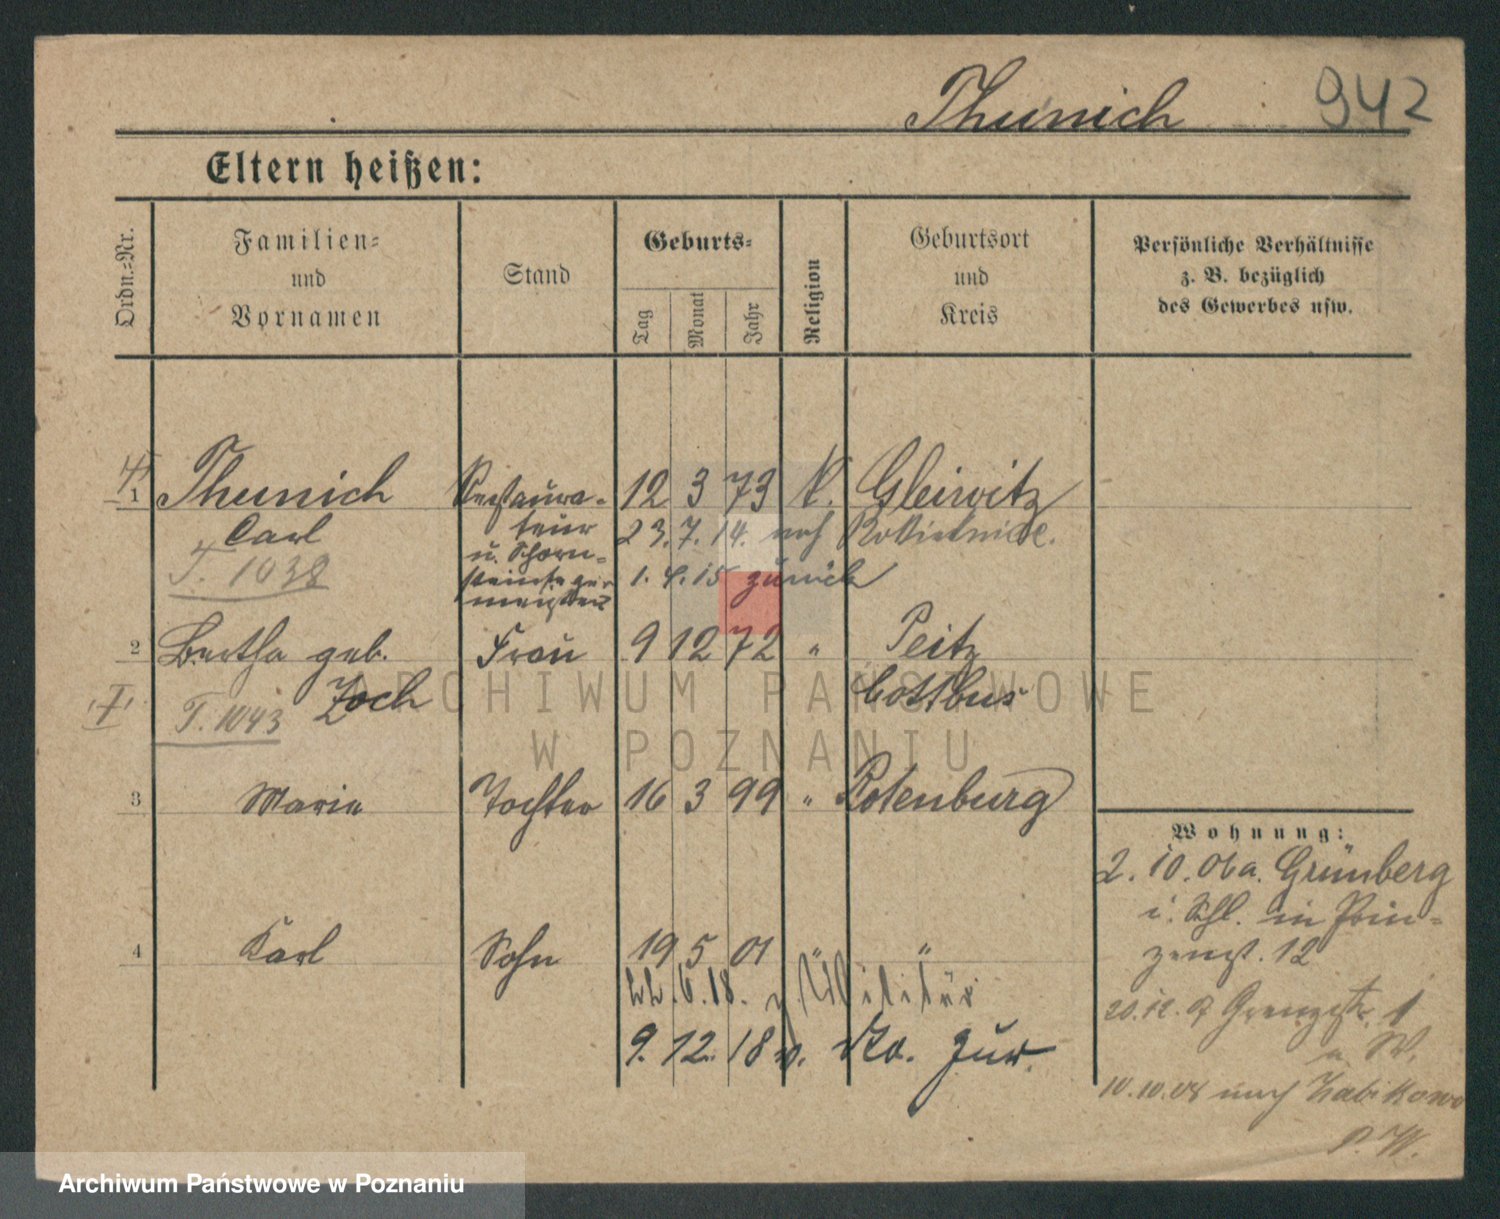 Thunich 942
Eltern heißen:
Ordn.-Nr.
Familien-
und
Vornamen
Stand
Geburts-
Tag
Monat
Jahr
Religion
Geburtsort
und
Kreis
Persönliche Verhältnisse
z. B. bezüglich
des Gewerbes usw.
1 Thunich Restaura- 12 3 73 K. Gleiwitz
Carl teur 23. 7. 14. nach Rokietnice.
T. 1038 u. Schorn-
steinfeger 1. 4. 15 zurück
meister
2 Bertha geb. Frau 9 12 72 " Peitz
Zoch Cottbus
T. 1043
3 Marie Tochter 16 3 99 " Rotenburg
Wohnung:
2. 10. 06 a. Grünberg
i. Schl. in Prin-
zenst. 12
4 Karl Sohn 19 5 01 " "
22. 6. 18. z. Militär
20.12. 07 Grenzstr. 1
9. 12. 18 v. do. zur.
10.10.08 nach Zabikowo
P. W.
ARCHIWUM PAŃSTWOWE
W POZNANIU
Archiwum Państwowe w Poznaniu